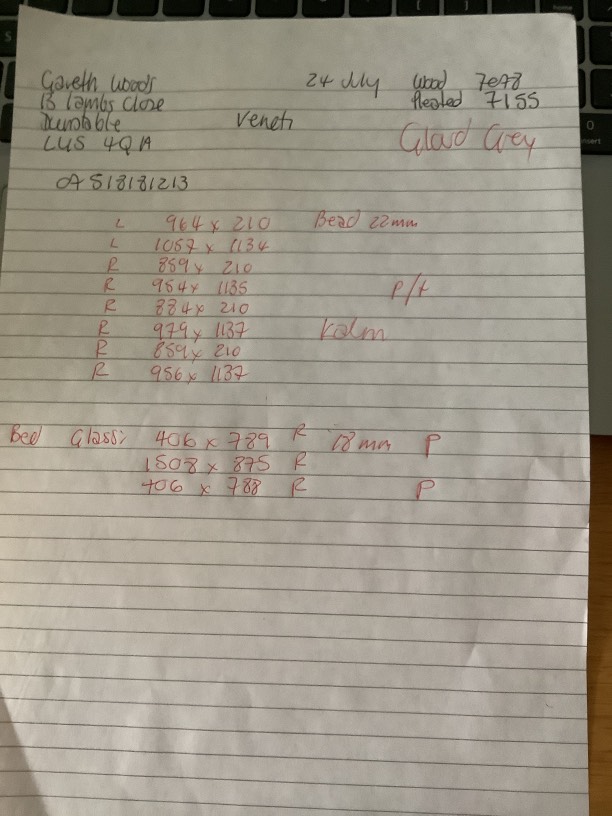 Gareth Woods 24 July Wood 7e78
13 Lambs Close Pleated 7155
Dunstable Veneti
LU5 4QA Cloud Grey
07518181213
L 964 x 210 Bead 22mm
L 1057 x 1134
R 859 x 210
R 954 x 1135 P/t
R 884 x 210
R 979 x 1137 Kalm
R 859 x 210
R 956 x 1137
Bed Glass: 406 x 789 R 18mm P
1508 x 875 R
406 x 788 R P